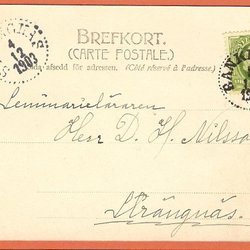 4
12
1903
BREFKORT.
(CARTE POSTALE.)
afsedd för adressen. (Côté réservé à l'adresse.)
BANKE
Seminarieläraren
Herr D. H. Nilsson
Strängnäs.